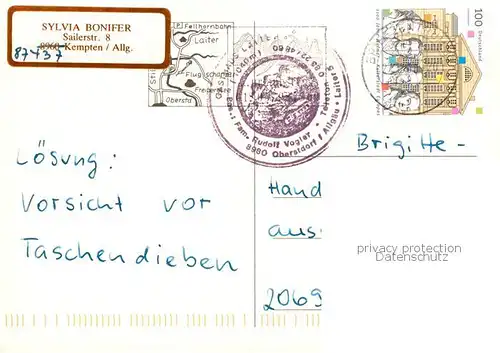 SYLVIA BONIFER
Sailerstr. 8
8960 Kempten / Allg.
87437
Fellhornbahn
Laiter
Flugschanze
Freibergsee
Oberstd
100
Deutschland
Fam. Rudolf Vogler Telefon
8980 Oberstdorf / Allgäu
Lösung:
Vorsicht vor
Taschendieben
Brigitte-
Hand
aus
2069
privacy protection
Datenschutz